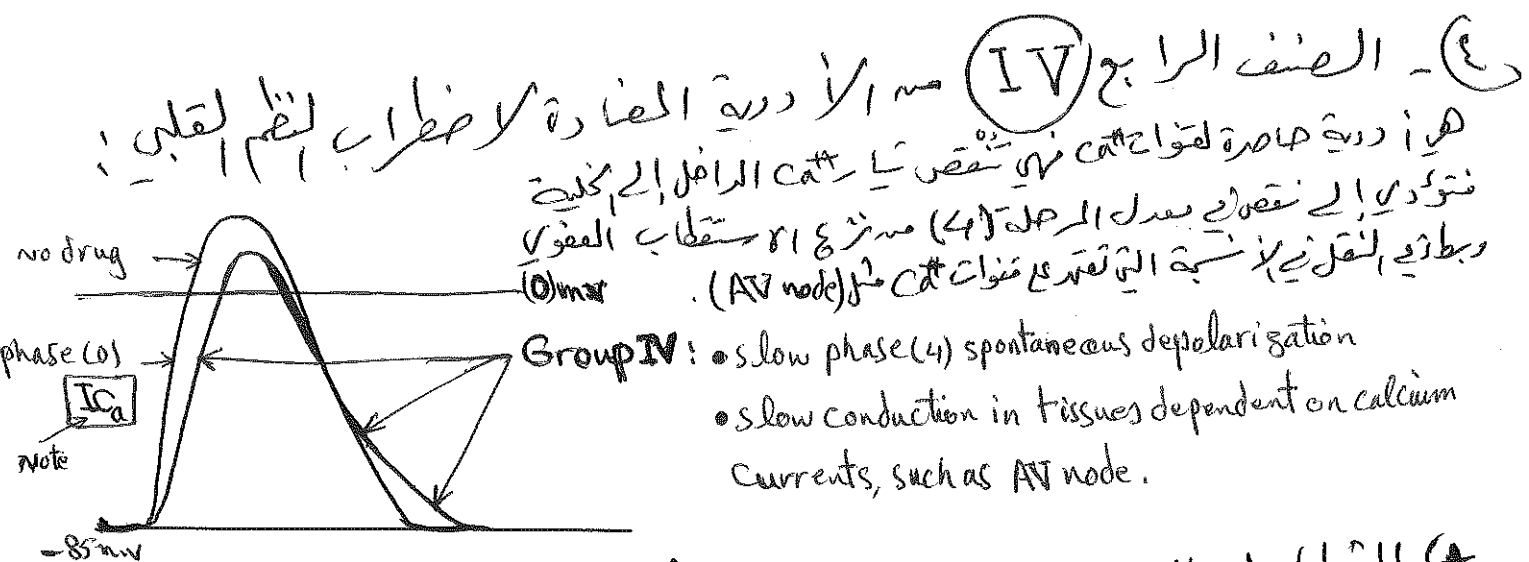 ٤- الصنف الرابع IV من الأدوية المضادة لاضطراب النظم القلبي :
هي أدوية حاصرة لقنوات Ca++ فهي تُنقص تيار Ca++ الداخل إلى الخلية
فتؤدي إلى نقص في معدل المرحلة (4) من نزع الاستقطاب العفوي
وبطء في النقل في الأنسجة التي تعتمد على قنوات Ca++ مثل (AV node).
no drug
(0) mv
phase (0)
ICa
Note
Group IV: • slow phase (4) spontaneous depolarization
• slow conduction in tissues dependent on calcium
currents, such as AV node.
-85 mv